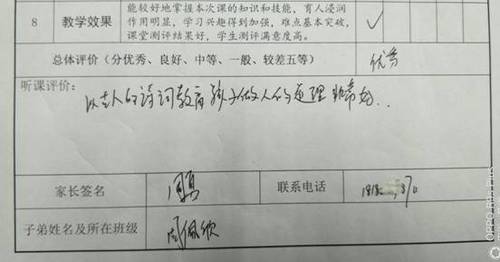 8 教学效果 能较好地掌握本次课的知识和技能，育人浸润
作用明显，学习兴趣得到加强，难点基本突破，
课堂测评结果好，学生测评满意度高。 ✓
总体评价（分优秀、良好、中等、一般、较差五等） 优秀
听课评价：
以古人的诗词教育孩子做人的道理非常好..
家长签名 周勇 联系电话
子弟姓名及所在班级 周佩欣